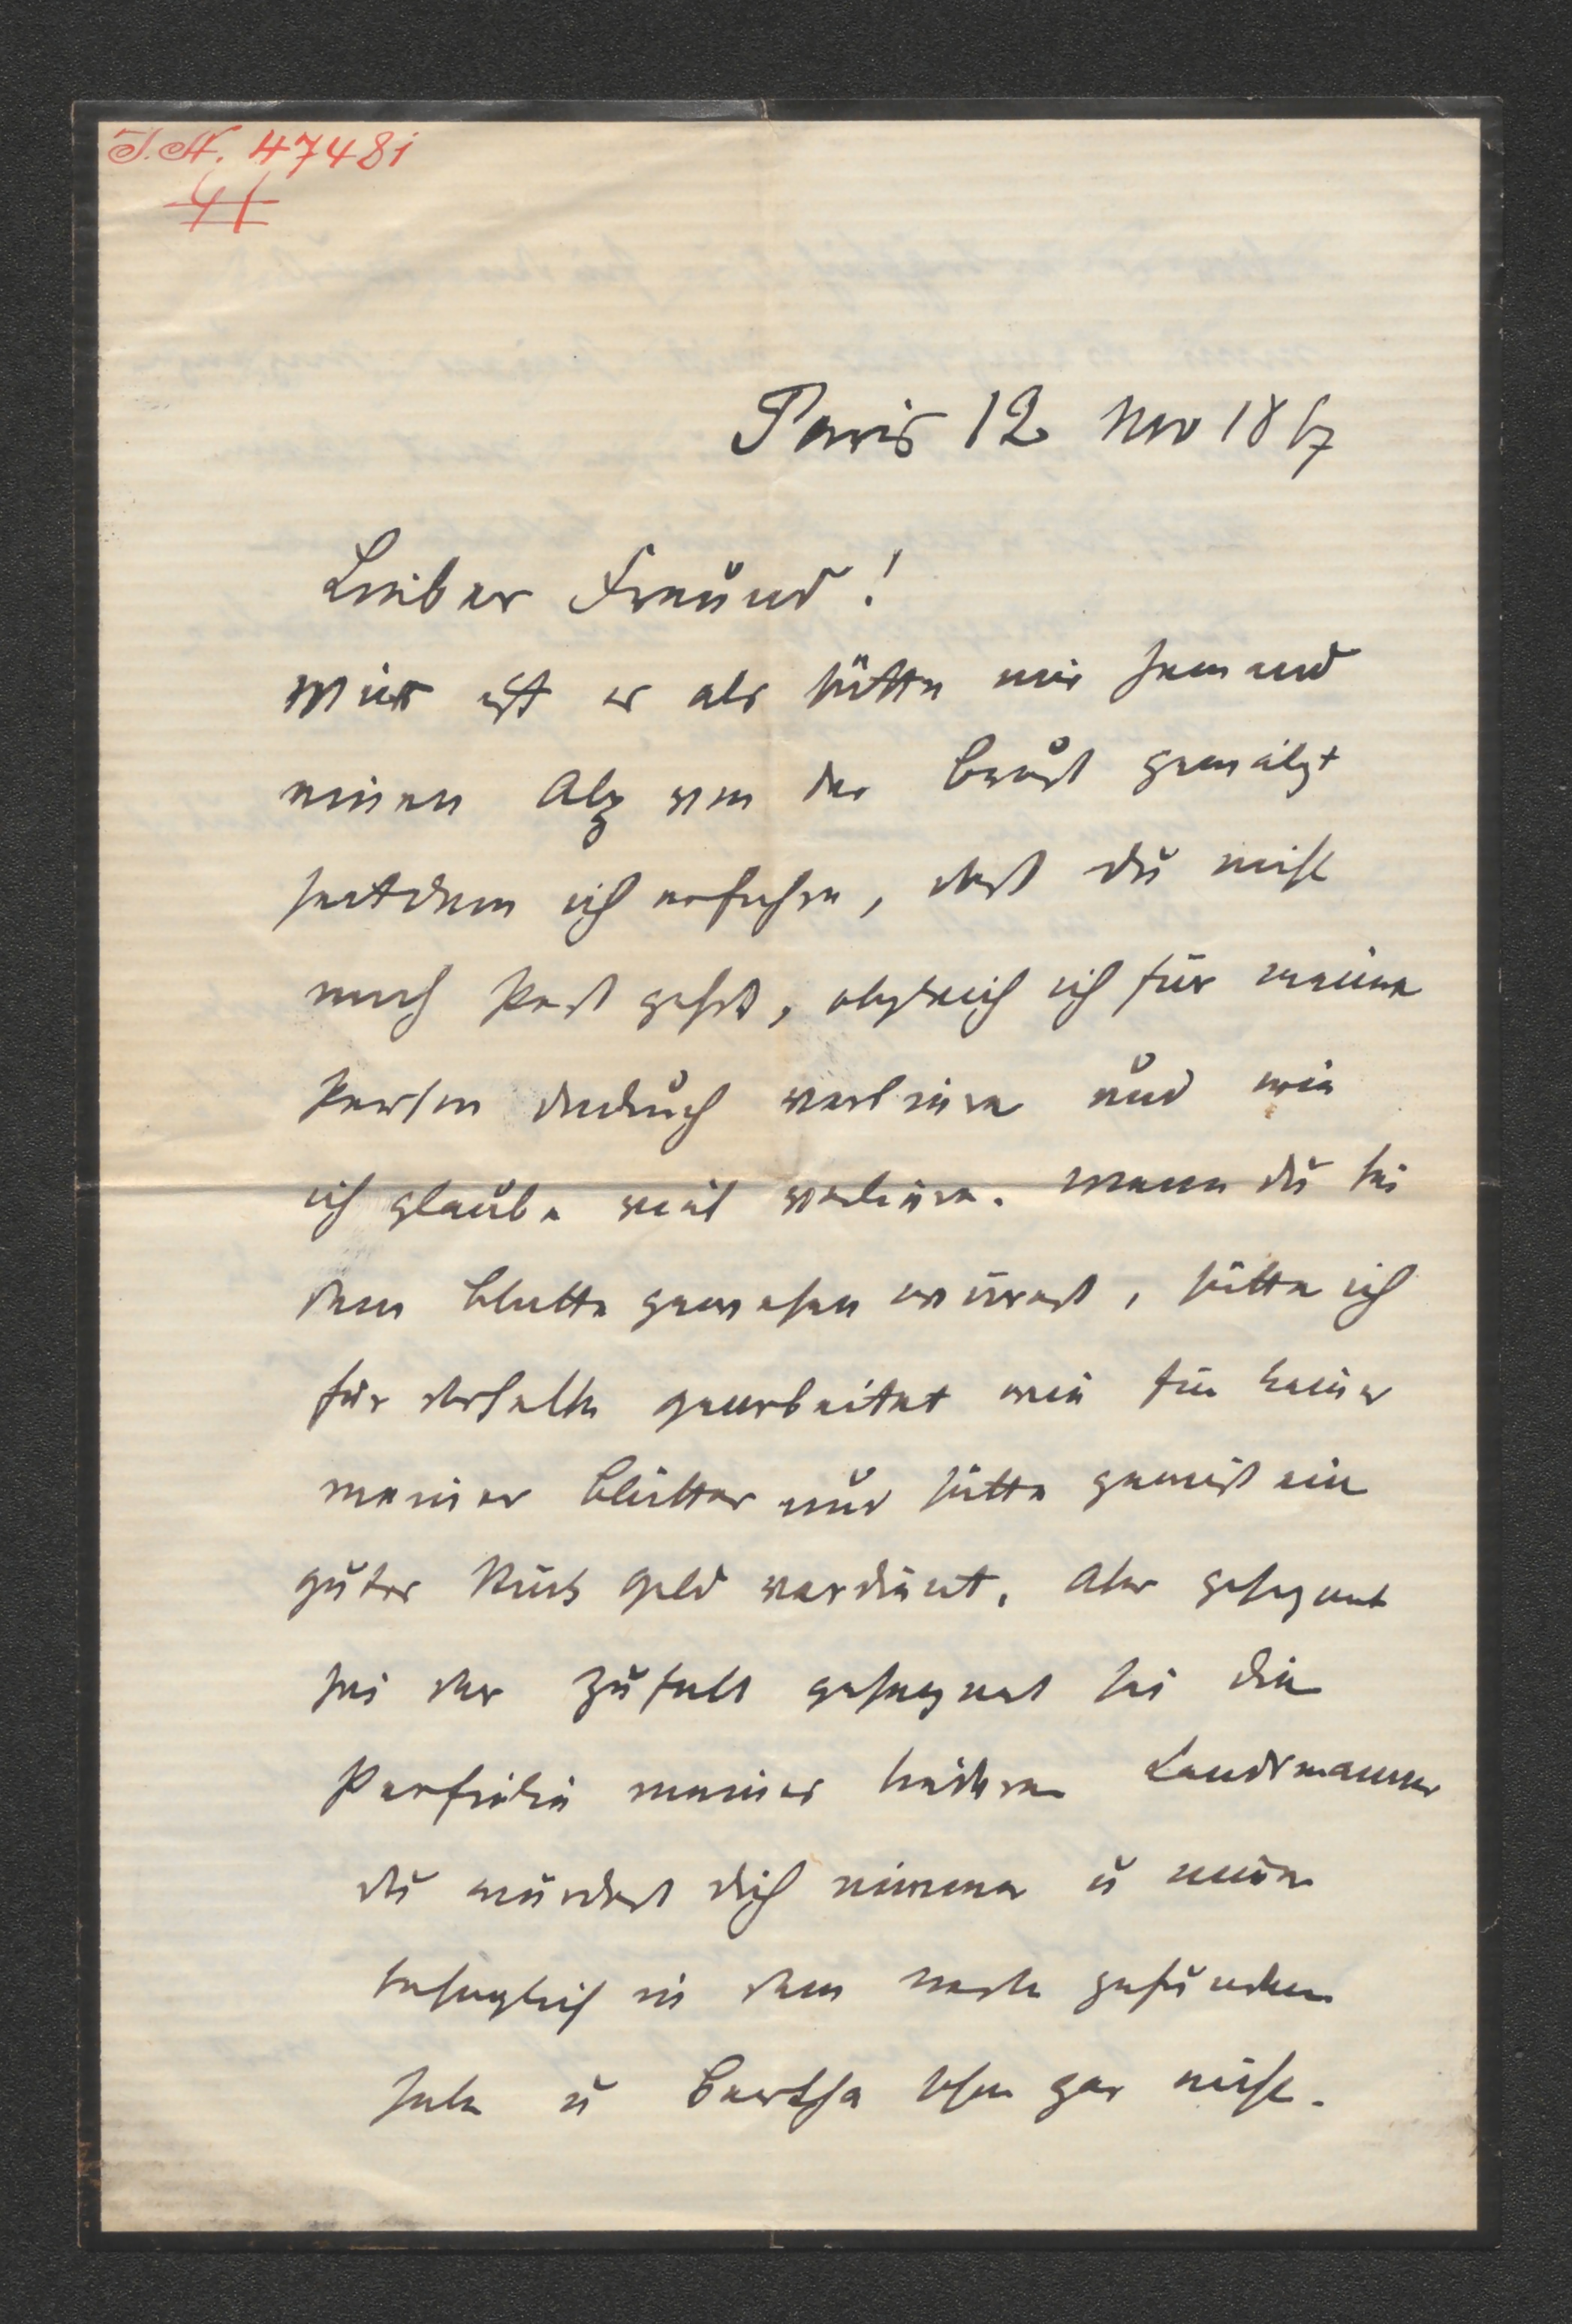 J.N. 47481
Paris 12 Nov 1867
Lieber Freund!
Mir ist es als hätte mir Jemand
einen Alp von der Brust gewälzt
seitdem ich erfuhren, daß du nicht
nach Pest gehst, obgleich ich für meine
Person dadurch verliere und wie
ich glaube viel verliere. Wenn du bei
dem Blatte gewesen wärest, hätte ich
für dasselbe gearbeitet wie für keines
meiner Blätter und hätte gewiß ein
gutes Stück Geld verdient. Aber gesegnet
sei der Zufall gesegnet sei die
Perfidie meiner lieben Landsmänner
du würdest dich nimmer u nimmer
behaglich in dem Neste gefunden
haben u Bertha schon gar nicht.